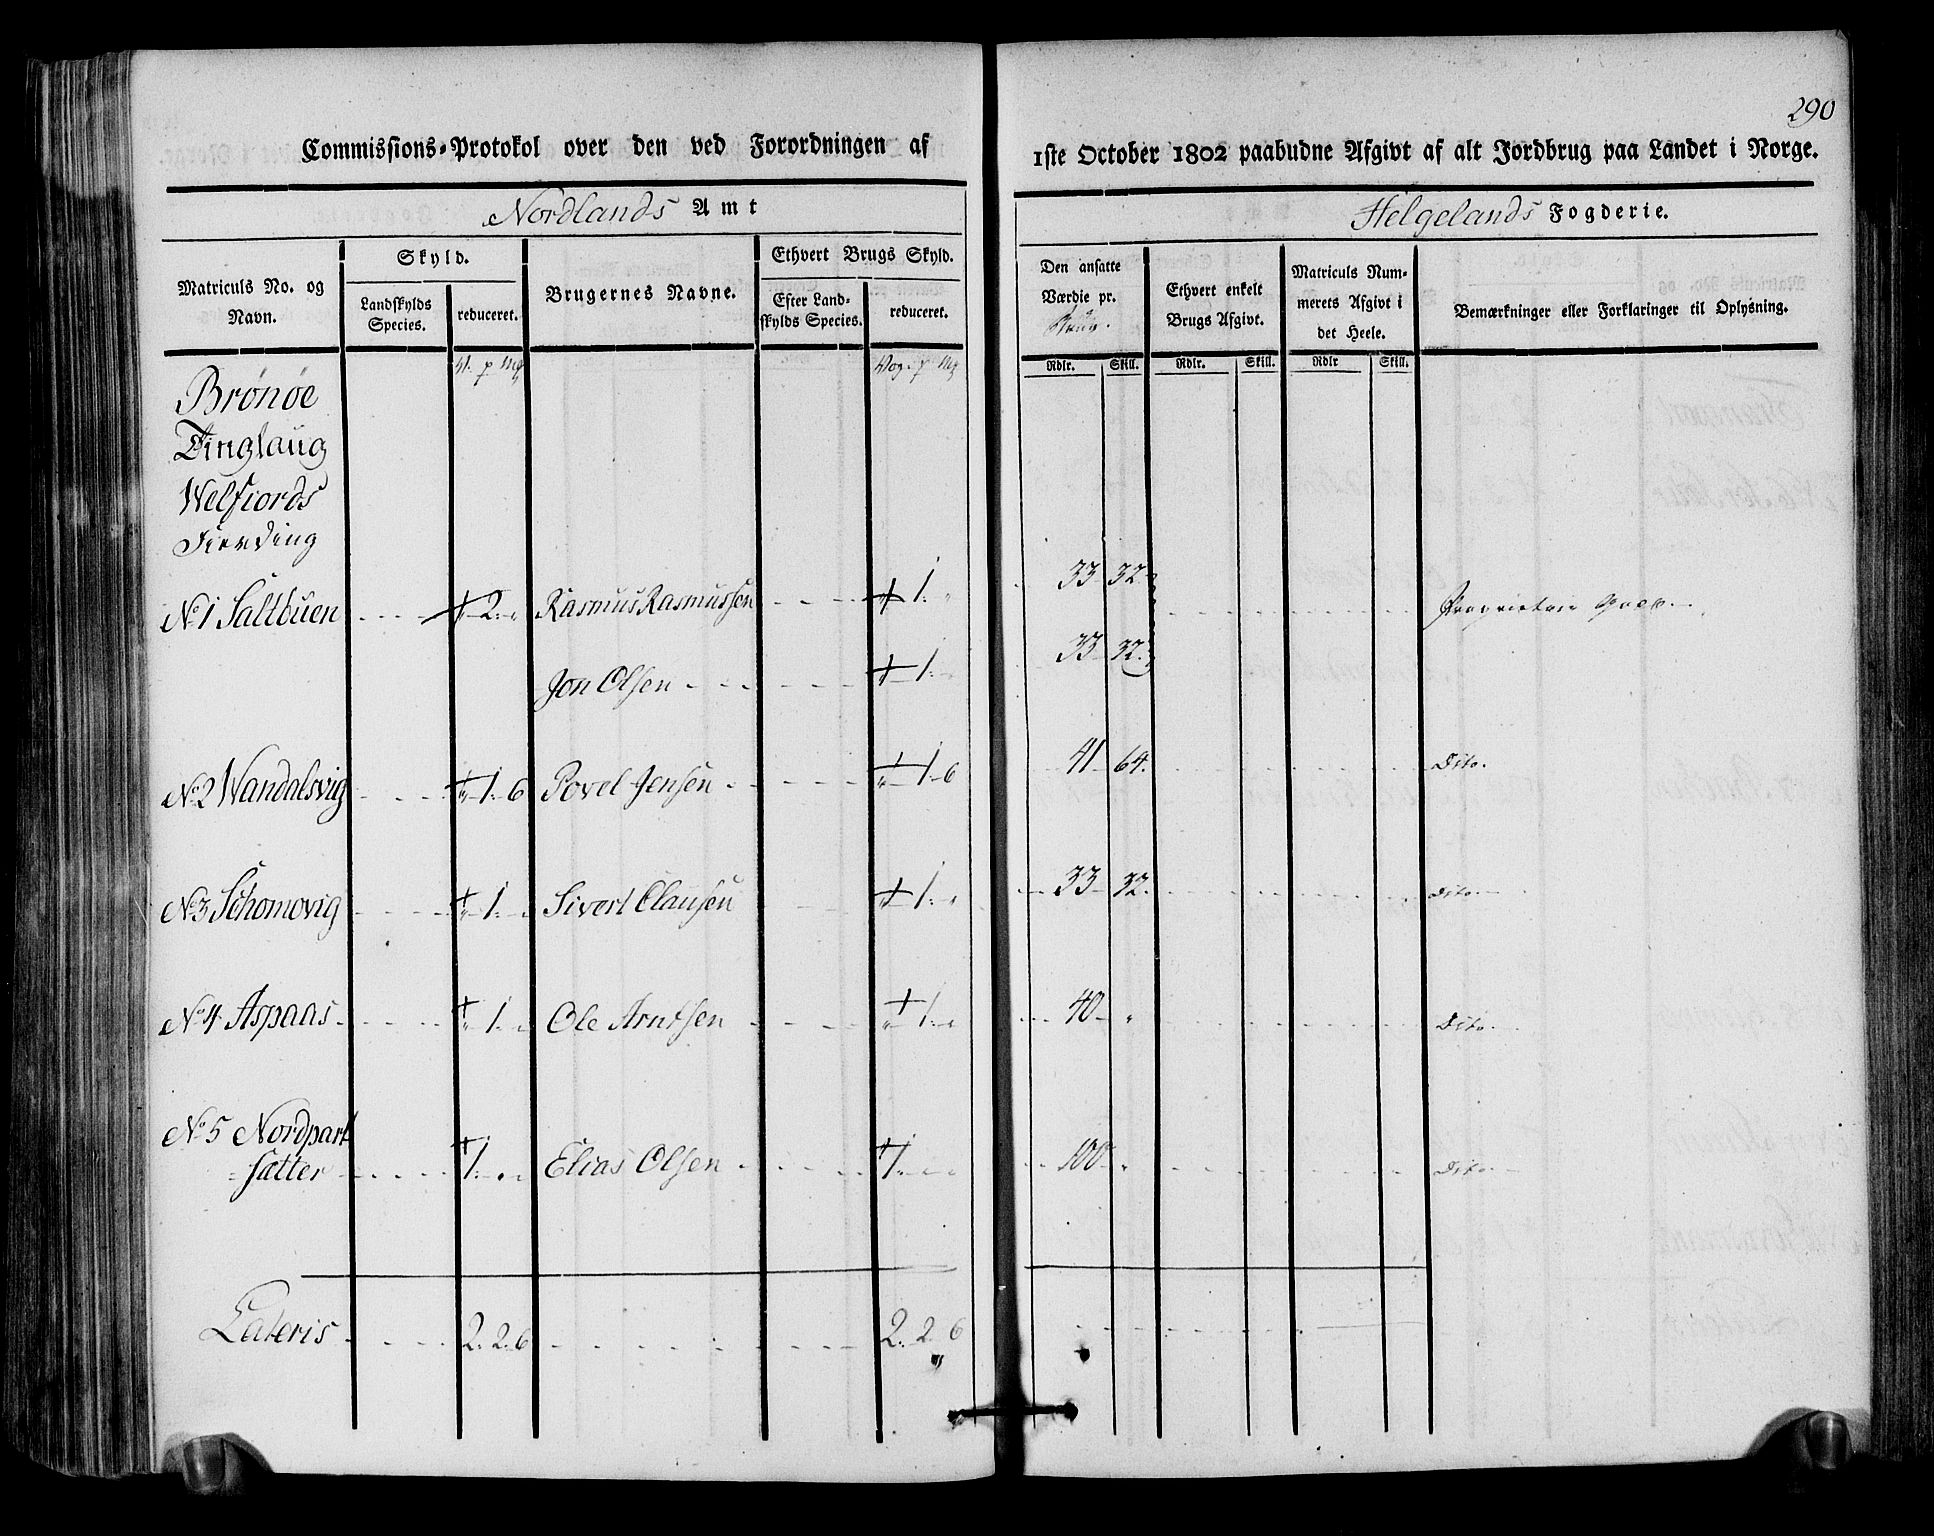 290
Commissions-Protokol over den ved Forordningen af 1ste October 1802 paabudne Afgivt af alt Jordbrug paa Landet i Norge.
Nordlands Amt Helgelands Fogderie.
Matriculs No. og Navn.
Skyld.
Landskylds Species.
reduceret.
Brugernes Navne.
Ethvert Brugs Skyld.
Efter Landskylds Species.
reduceret.
Den ansatte Værdie pr.
Ethvert enkelt Brugs Afgivt.
Matriculs Nummerets Afgivt i det Heele.
Bemærkninger eller Forklaringer til Oplysning.
V. p Mk Vog. p Mk Rdlr. Skill. Rdlr. Skill. Rdlr Skill.
Brønøe
Tinglaug
Welfiords
Fierding
No 1 Saltbuen 2 Rasmus Rasmussen 1 33 32
Jon Olsen 1 33 32
No 2 Wandalsvig 1 6 Povel Jensen 1 6 41 64. Dito.
No 3 Schomovig 1 Sivert Clausen 1 33 32. Dito
No 4 Aspaas 1 Ole Arntsen 1 40 Dito
No 5 Nordpart
sætter 1 Elias Olsen 1 100 Dito
Lateris 2. 2. 6 2. 2. 6